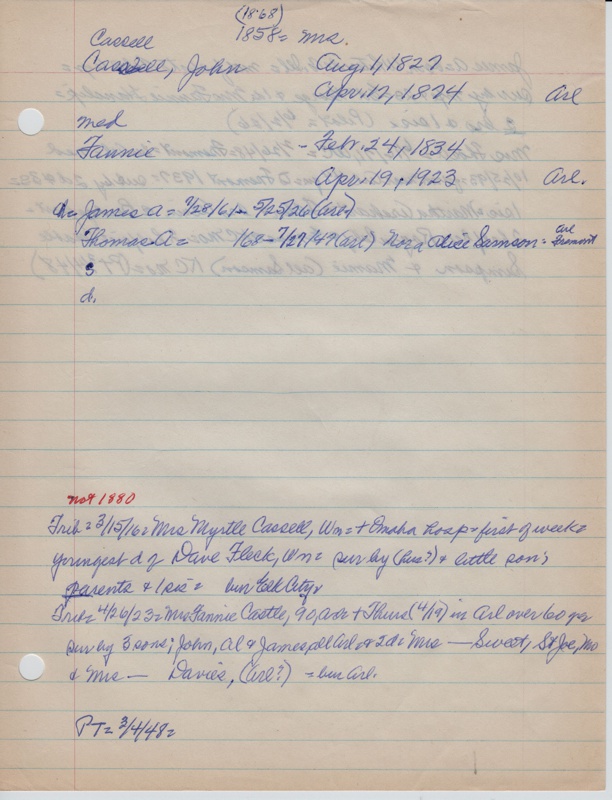 (1868)
1858 = Mrs.
Cassell
Cassell, John Aug. 1, 1827
Apr. 17, 1874 Arl
med
Fannie - Febr. 24, 1834
Apr. 19, 1923 Arl.
James A = 7/28/61 - 5/25/26 (Arl)
Thomas A = 168 - 7/27/47 (Arl) Nora Alice Samson = Arl Fremont
s
d.
not 1880
Trib = 3/15/16 = Mrs Myrtle Cassell, Wn = + Omaha hosp = first of week =
youngest d of Dave Fleck, Wn = sur by (hus?) & little son;
parents & 1 sis = bur Elk City
Trib = 4/26/23 = Mrs Fannie Castle, 90, + Thurs (4/19) in Arl over 60 yr
sur by 3 sons; John, Al & James, all Arl & 2 d = Mrs — Sweet, St Joe, Mo
& Mrs — Davies, (Arl?) = bur Arl.
PT = 3/4/48 =